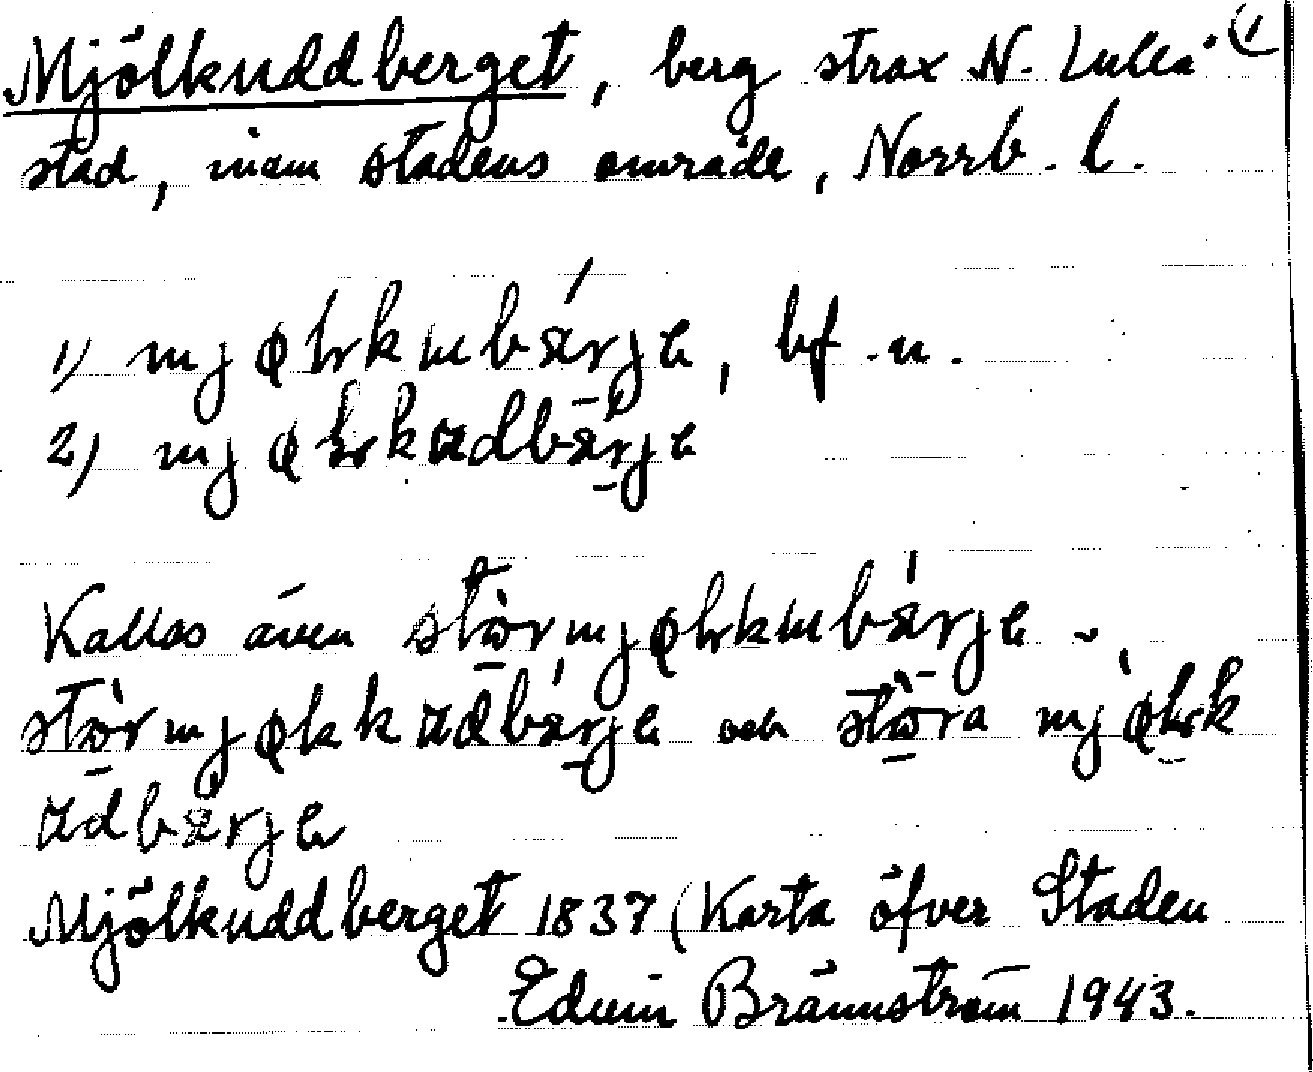 Mjölkuddberget, berg strax N. Luleå (1
stad, inom stadens område, Norrb. l.
1) mjφlrkɯbärje, bf. n.
2) mjφlrkudbärje
Kallas även stòrmjφlrkɯbärje ~
stòrmjφlkkudbärje och stòra mjφlrk
udbärje
Mjölkuddberget 1837 (Karta öfver Staden
Edvin Brännström 1943.